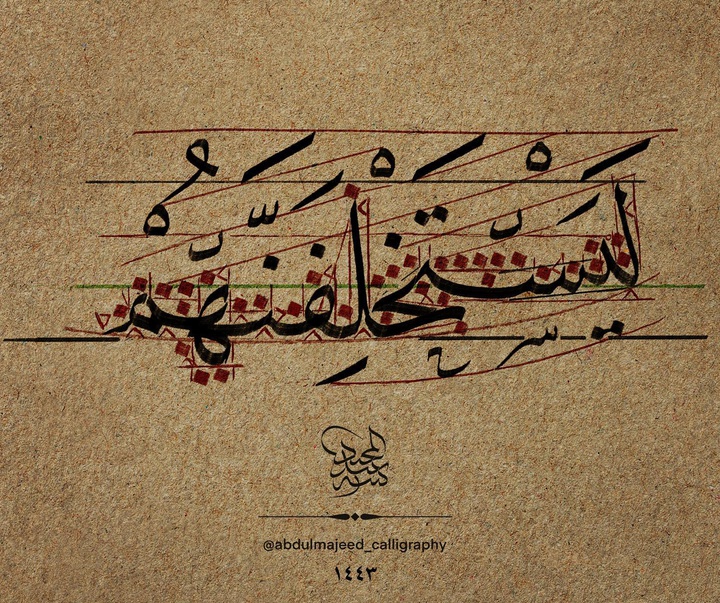 لَيَسْتَخْلِفَنَّهُمْ
كتبه عبد المجيد
@abdulmajeed_calligraphy
١٤٤٣